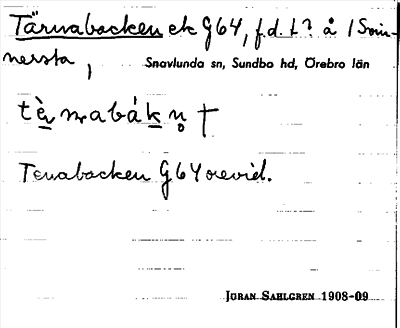 Tärnabacken ek G64, f.d. t? å 1 Svin-
nersta,
Snavlunda sn, Sundbo hd, Örebro län
tè̱rnabáḵn̥ †
Tenabacken G64 orevid.
JÖRAN SAHLGREN 1908-09